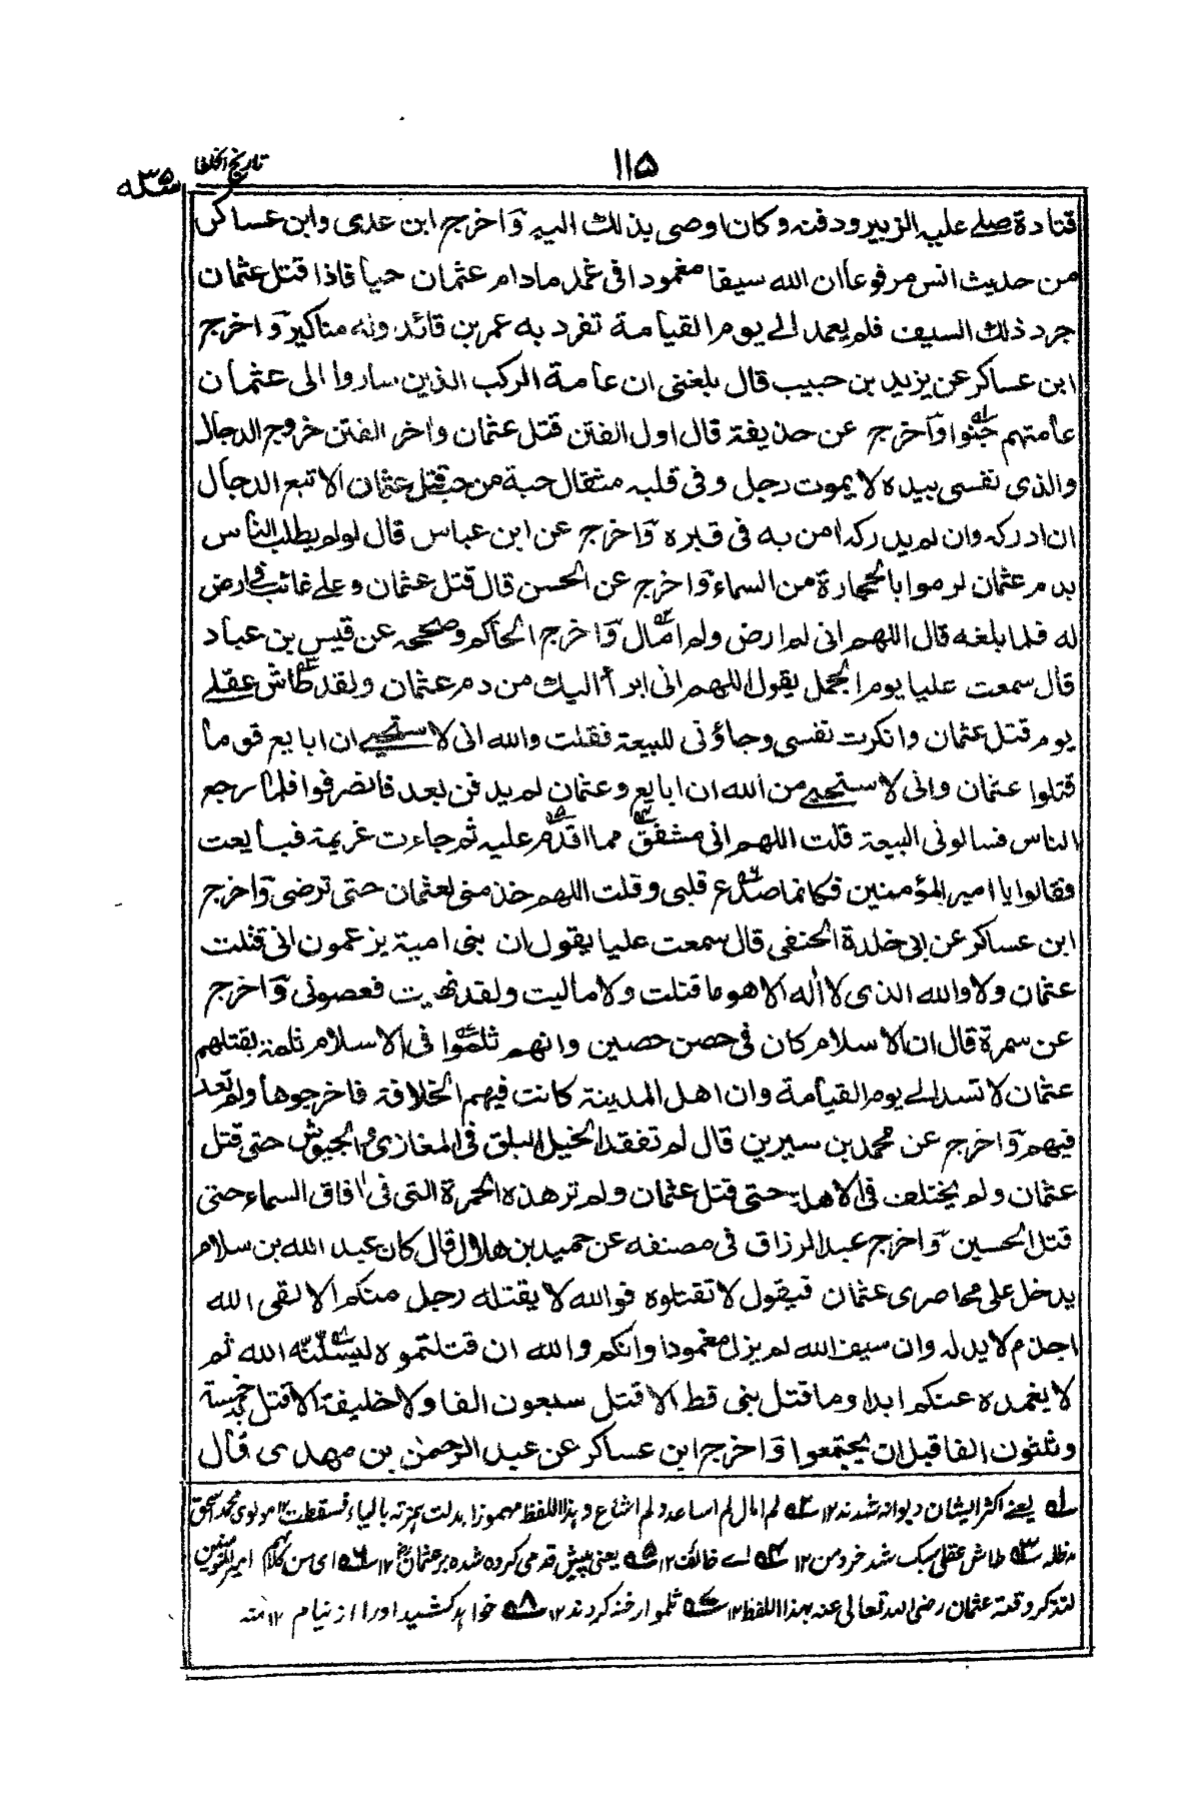 تاریخ الخلفا
۱۱۵
سنه ۳۵
قتادة صلے علیہ الزبیر ودفنہ وکان اوصی بذلك الیہ وَاخرج ابن عدی وابن عساکر
من حدیث انس مرفوعاً ان الله سیفا مغمودا فی غمد مادام عثمان حیا فاذا قتل عثمان
جرد ذلك السیف فلم یغمد الے یوم القیامة تفرد به عمر بن قائد وله مناکیر وَاخرج
ابن عساکر عن یزید بن حبیب قال بلغنی ان عامة الرکب الذین ساروا الی عثمان
عامتهم جُنوا وَاخرج عن حذیفة قال اول الفتن قتل عثمان واخر الفتن خروج الدجال
والذی نفسی بیده لا یموت رجل وفی قلبه مثقال حبة من حب قتل عثمان الا تبع الدجال
ان ادرکه وان لم یدرکه امن به فی قبره وَاخرج عن ابن عباس قال لو لم یطلب الناس
بدم عثمان لرموا بالحجارة من السماء وَاخرج عن الحسن قال قتل عثمان وعلے غائب فی ارض
له فلما بلغه قال اللهم انی لم ارض ولم امال وَاخرج الحاکم وصححه عن قیس بن عباد
قال سمعت علیا یوم الجمل یقول اللهم انی ابرأ الیك من دم عثمان ولقد طاش عقلے
یوم قتل عثمان وانکرت نفسی وجاؤنی للبیعة فقلت والله انی لا ستحیے ان ابایع قوما
قتلوا عثمان وانی لا ستحیے من الله ان ابایع وعثمان لم یدفن بعد فانصرفوا فلما رجع
الناس فسالونی البیعة قلت اللهم انی مشفق مما اقدم علیه ثم جاءت عزیمة فبایعت
فقالوا یا امیر المؤمنین فکانما صدع قلبی وقلت اللهم خذ منی لعثمان حتی ترضی وَاخرج
ابن عساکر عن ابی خلدة الحنفی قال سمعت علیا یقول ان بنی امیة یزعمون انی قتلت
عثمان ولا والله الذی لا اله الا هو ما قتلت ولا مالیت ولقد نهیت فعصونی وَاخرج
عن سمرة قال ان الاسلام کان فی حصن حصین وانهم ثلموا فی الاسلام ثلمة بقتلهم
عثمان لا تسد الے یوم القیامة وان اهل المدینة کانت فیهم الخلافة فاخرجوها ولم تعد
فیهم وَاخرج عن محمد بن سیرین قال لم تفقد الخیل البلق فی المغازی والجیوش حتی قتل
عثمان ولم یختلف فی الاهلة حتی قتل عثمان ولم تر هذه الحمرة التی فی افاق السماء حتی
قتل الحسین وَاخرج عبد الرزاق فی مصنفه عن حمید بن هلال قال کان عبد الله بن سلام
یدخل علی محاصری عثمان فیقول لا تقتلوه فوالله لا یقتله رجل منکم الا لقی الله
اجذم لا ید له وان سیف الله لم یزل مغمودا وانکم والله ان قتلتموه لیسلنّه الله ثم
لا یغمده عنکم ابدا وما قتل نبی قط الا قتل سبعون الفا ولا خلیفة الا قتل خمسة
وثلثون الفا قبل ان یجتمعوا وَاخرج ابن عساکر عن عبد الرحمن بن مهدی قال
له یعنے اکثر ایشان دیوانه شدند ۱۲ ۲ لم امال لم اساعد ولم اشاع وہذا اللفظ مهموز ابدلت ہمزتہ بالیاء فسقطت ۱۲ مولوی محمد اسحق
مدظله ۳ طاش عقلی سبک شد خرد من ۱۲ ۴ اے خائف ۱۲ ۵ یعنی پیش قدمی کرده شده بر عثمان ۱۲ ۶ ای من کلامهم امیر المؤمنین
لتذکر وقعة عثمان رضی الله تعالی عنه بهذا اللفظ ۱۲ ۷ ثلموا رخنه کردند ۱۲ ۸ خواہد کشید او را از نیام ۱۲ منه